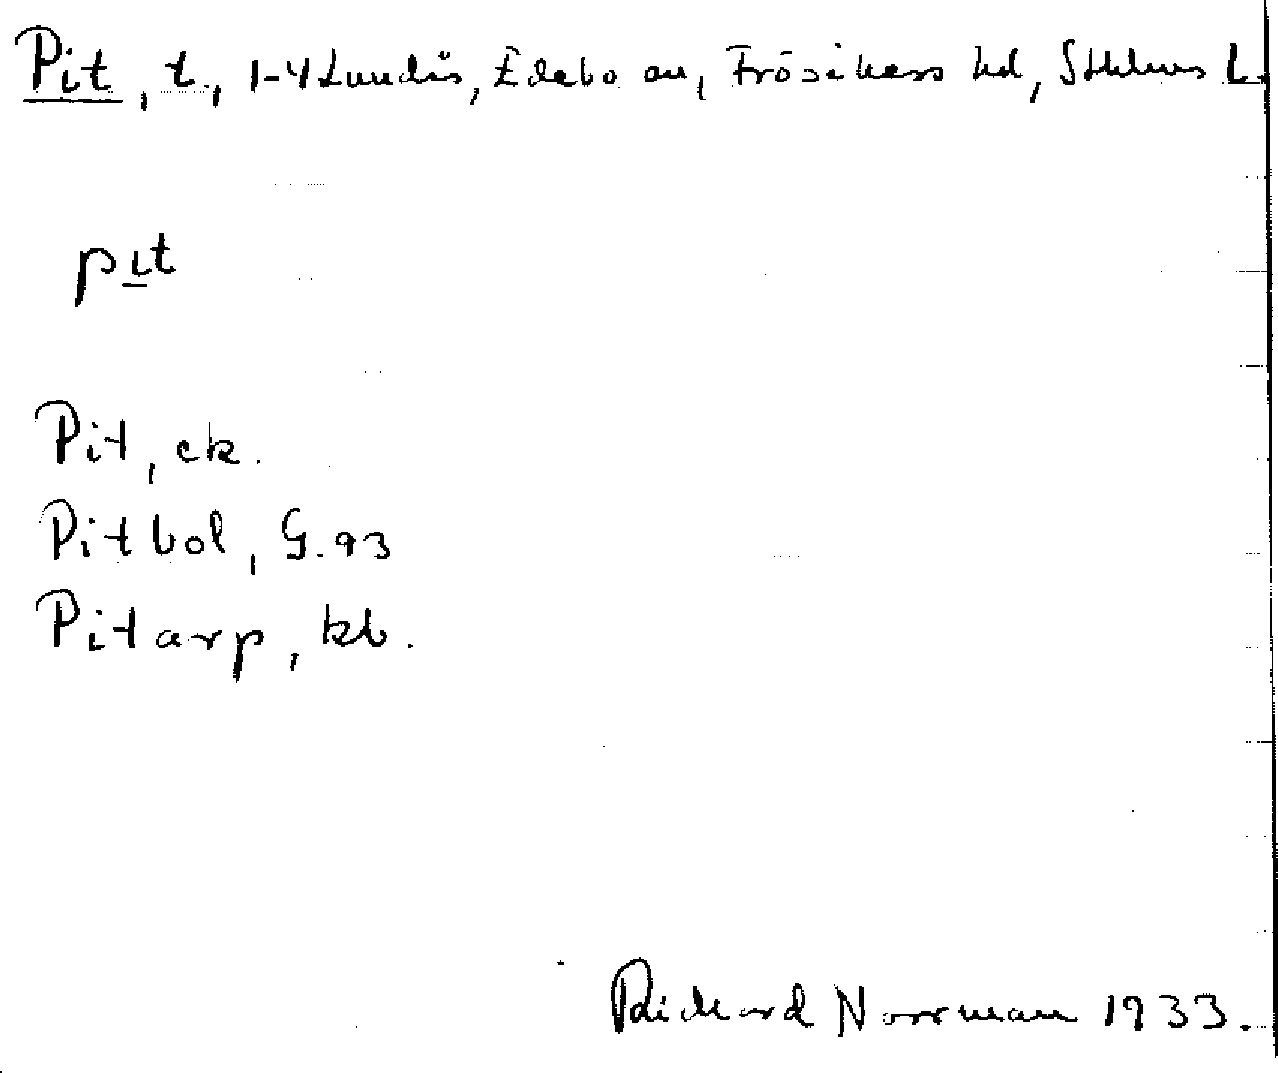 Pit, t., 1-4 Lundås, Edebo sn, Frösåkers hd, Sthlms L.
pit
Pit, ek.
Pitbol, G.93
Pitarp, kb.
Rickard Norrman 1933.